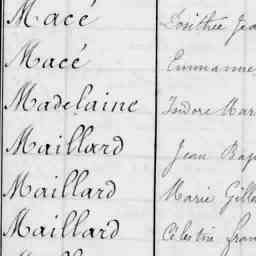 Macé Dosithée Jea
Macé Emmanue
Madelaine Isidore Mar
Maillard Jean Bap
Maillard Marie Gille
Maillard Célestin fran